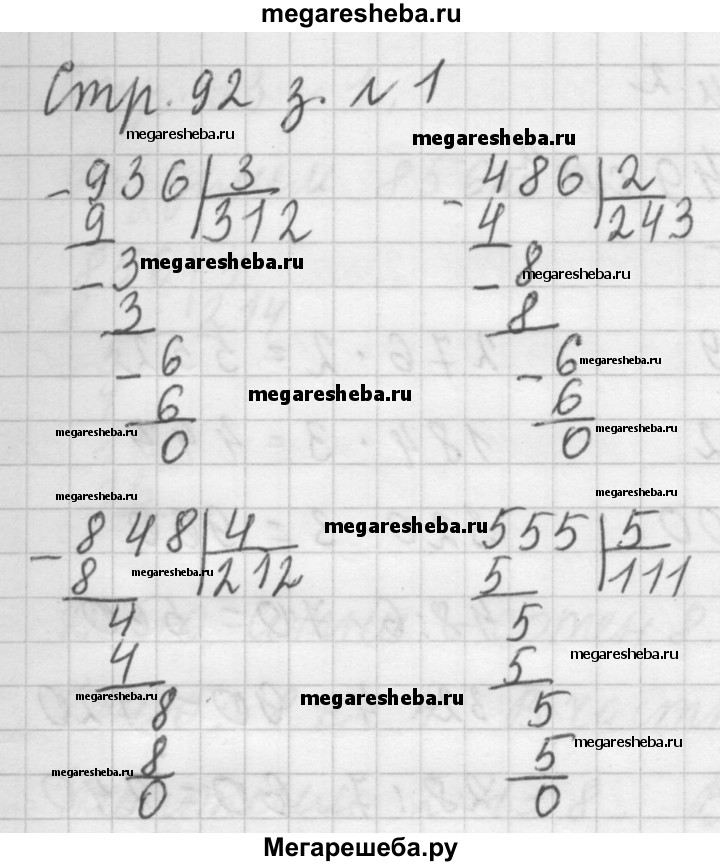 megaresheba.ru
Стр. 92 з. № 1
megaresheba.ru megaresheba.ru
- 936 | 3 - 486 | 2
9 | 312 4 | 243
- 3 megaresheba.ru - 8 megaresheba.ru
3 8
- 6 - 6 megaresheba.ru
6 megaresheba.ru 6
megaresheba.ru 0 0 megaresheba.ru
megaresheba.ru megaresheba.ru
- 848 | 4 megaresheba.ru 555 | 5
8 megaresheba.ru | 212 5 | 111
4 5
4 5 megaresheba.ru
megaresheba.ru 8 megaresheba.ru 5
megaresheba.ru 8 5 megaresheba.ru
0 0
Мегарешеба.ру